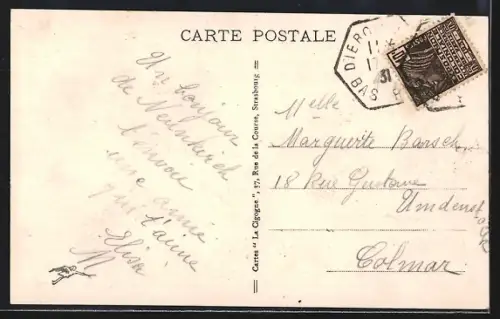 CARTE POSTALE
DIERO
31
BAS
Un bonjour
de Neunkirch
t'envoie
une amie
qui t'aime
Elisa
M
Cartes "La Cigogne", 37, Rue de la Course, Strasbourg
Melle
Marguerite Barsch
18 Rue Gustave
Umdenstock
Colmar